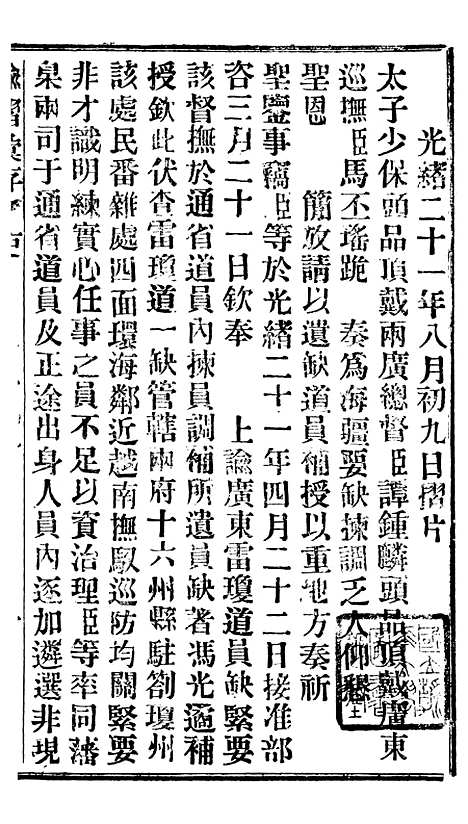 光緒二十一年八月初九日摺片
太子少保頭品頂戴兩廣總督臣譚鍾麟頭品頂戴廣東
巡撫臣馬丕瑤跪　奏為海疆要缺揀調乏人仰懇
聖恩　簡放請以遺缺道員補授以重地方奏祈
聖鑒事竊臣等於光緒二十一年四月二十二日接准部
咨三月二十一日欽奉　上諭廣東雷瓊道員缺緊要
該督撫於通省道員內揀員調補所遺員缺著馮光遹補
授欽此伏查雷瓊道一缺管轄兩府十六州縣駐劄瓊州
該處民番雜處四面環海鄰近越南撫馭巡防均關緊要
非才識明練實心任事之員不足以資治理臣等率同藩
臬兩司于通省道員及正途出身人員內逐加遴選非現